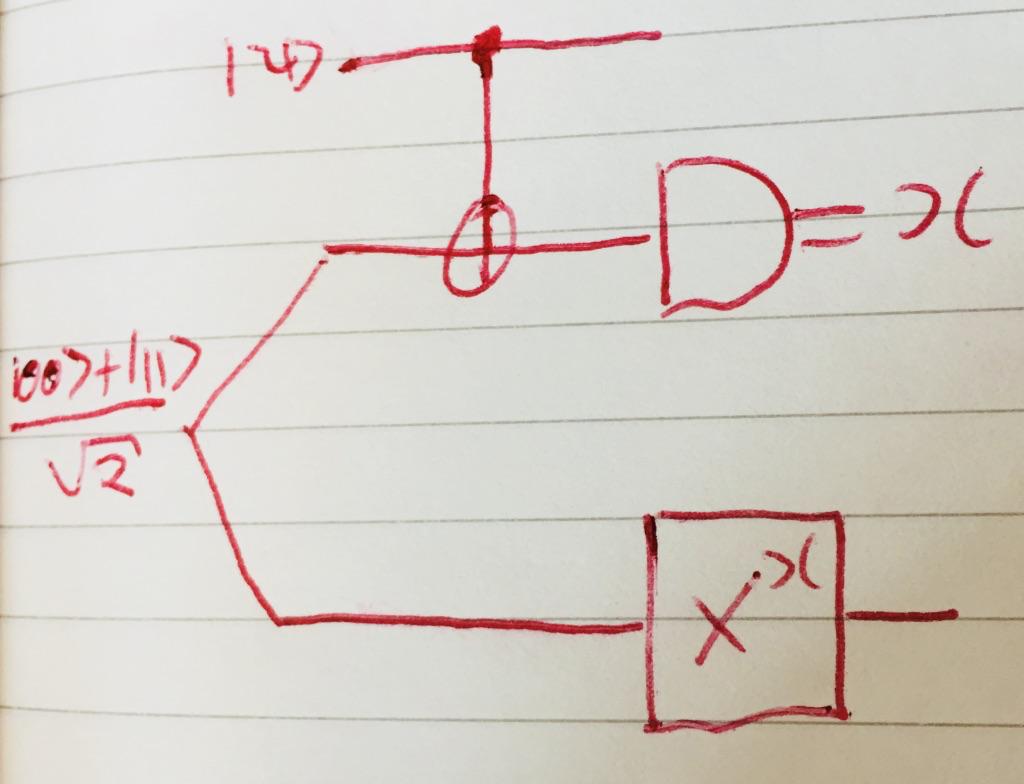 |ψ⟩
= x
|00⟩+|11⟩
√2
X^x